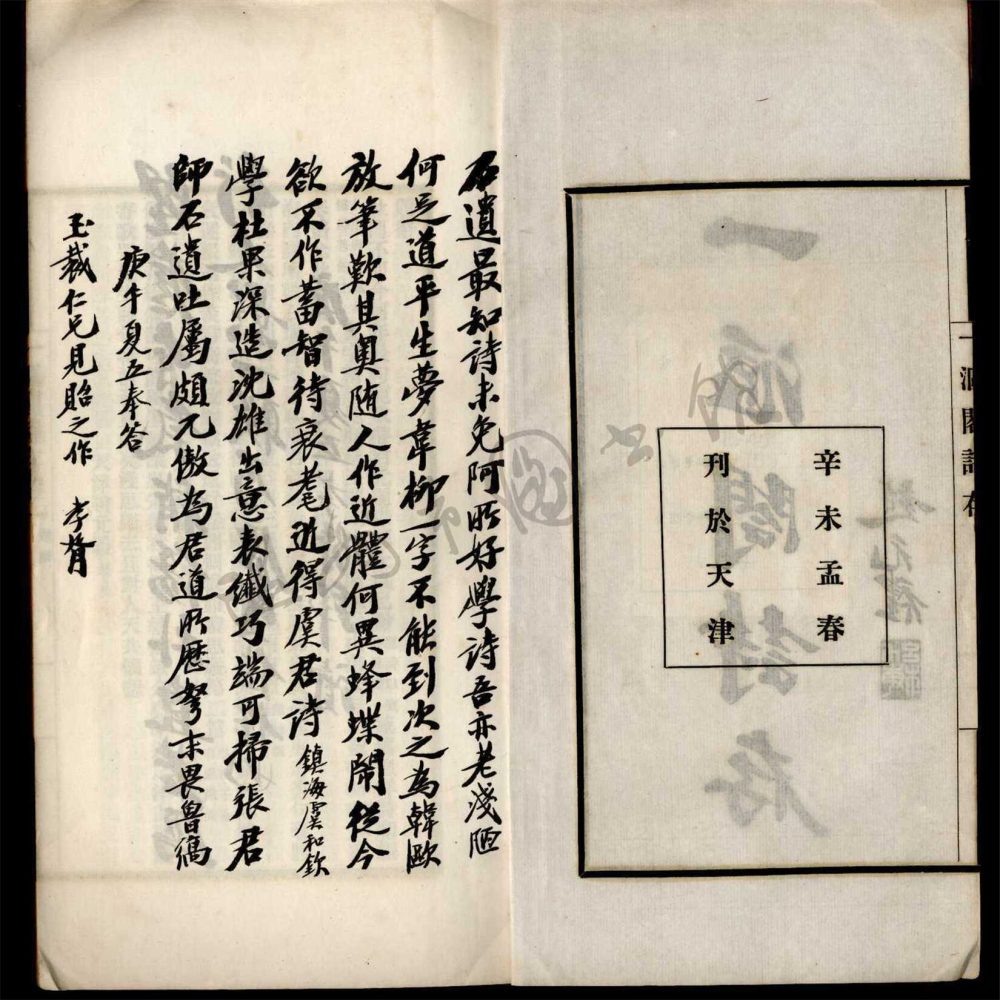 一漚閣詩存
辛未孟春
刊於天津
石遺最知詩未免阿所好學詩吾亦老淺陋
何足道平生夢韋柳一字不能到次之為韓歐
放筆歎其奧随人作近體何異蜂蝶鬧從今
欲不作蓄智待衰耄近得虞君詩鎮海虞和欽
學杜果深造沈雄出意表纖巧端可掃張君
師石遺吐屬頗兀傲為君道所歷弩末畏魯縞
庚午夏五奉答
玉裁仁兄見貽之作 孝胥